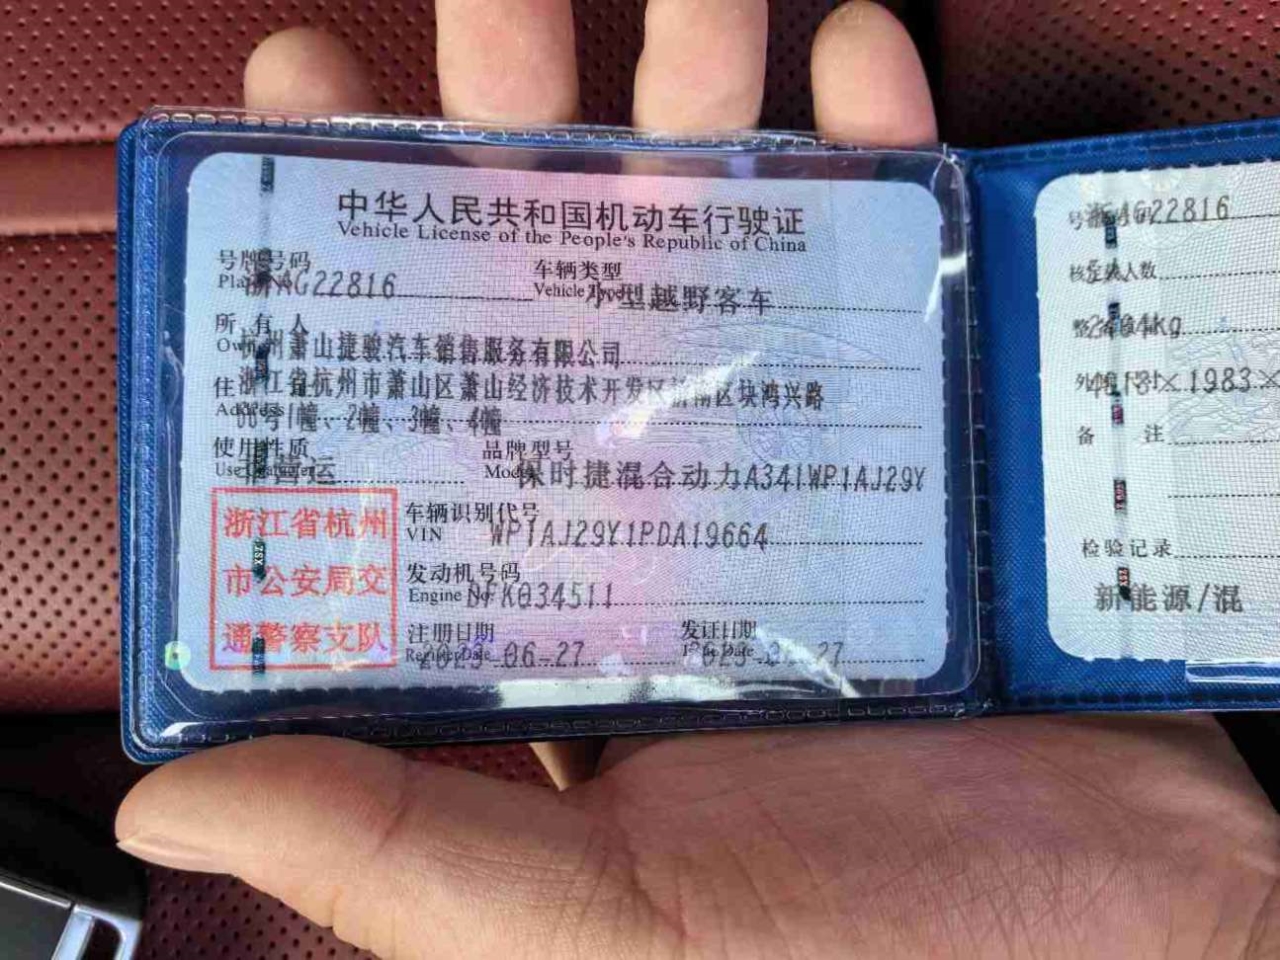 中华人民共和国机动车行驶证
Vehicle License of the People's Republic of China
号牌号码 浙AG22816 车辆类型 小型越野客车
Vehicle Type
所有人 杭州萧山捷骏汽车销售服务有限公司
住 浙江省杭州市萧山区萧山经济技术开发区桥南区块鸿兴路
Address 号1幢、2幢、3幢、4幢
使用性质 非营运 品牌型号 保时捷混合动力A34IWP1AJ29Y
Use Character Model
浙江省杭州
市公安局交
通警察支队
车辆识别代号
VIN WP1AJ29Y1PDA19664
发动机号码
Engine No. DFK034511
注册日期 2023-06-27 发证日期
Register Date Issue Date
号牌号码 浙AG22816
核定载人数
kg
1983×
备注
检验记录
新能源/混